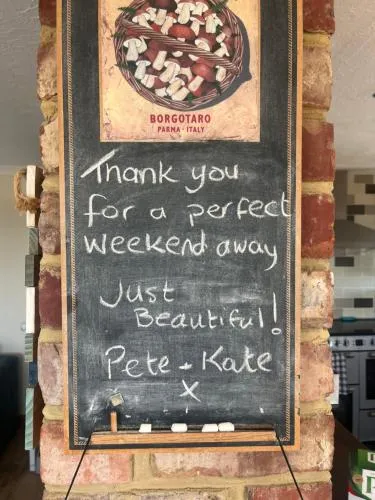 BORGOTARO
PARMA · ITALY
Thank you
for a perfect
weekend away
Just
Beautiful!
Pete + Kate
x